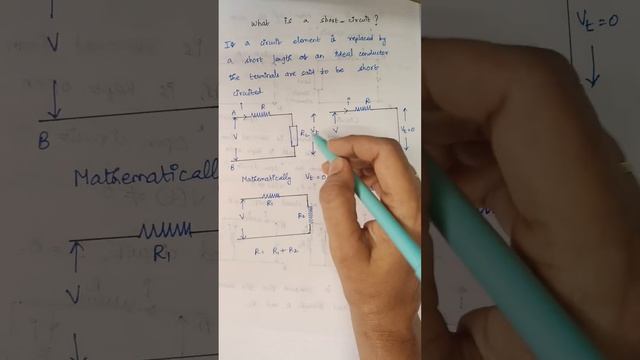 What is a short-circuit?
If a circuit element is replaced by
a short length of an ideal conductor
the terminals are said to be short
circuited
A i R
V
B
R
i R
V
Vt=0
Mathematically Vt=0
R1
V
R2
R= R1+R2
V
B
Mathematically
R1
V
Vt=0